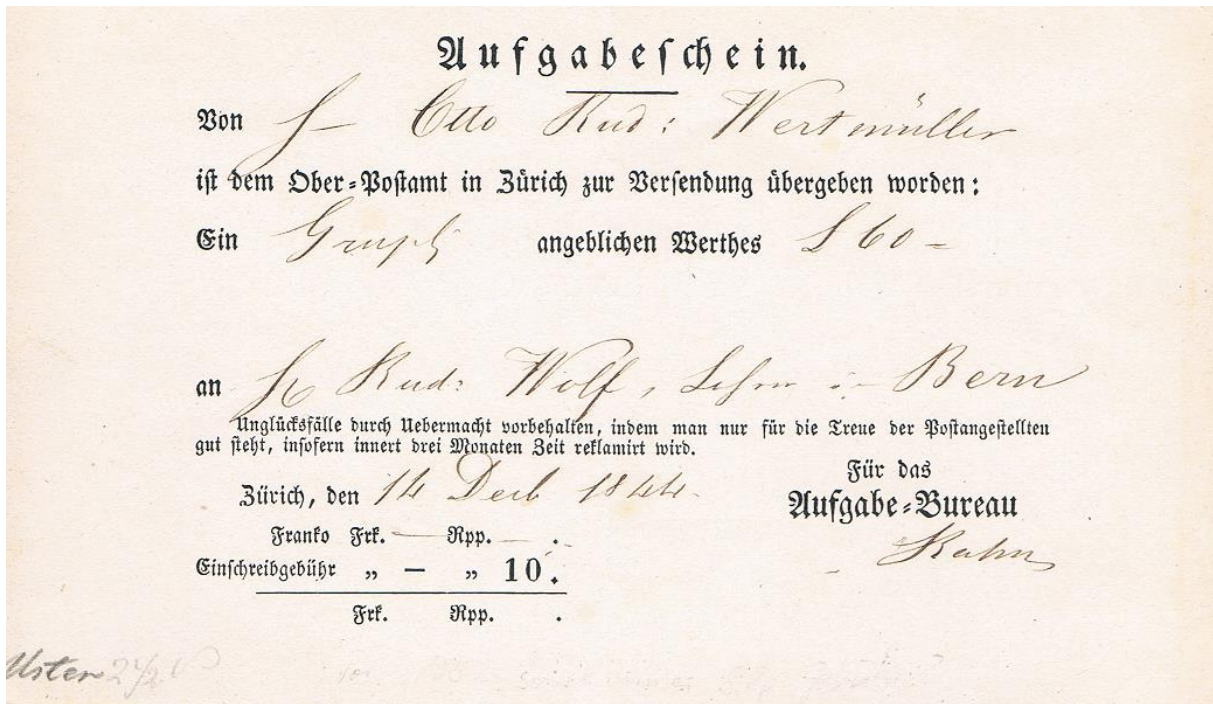 Aufgabeschein.
Von H Otto Rud: Wertmüller
ist dem Ober-Postamt in Zürich zur Versendung übergeben worden:
Ein angeblichen Werthes 60 =
an H Rud: Wolf, in Bern
Unglücksfälle durch Uebermacht vorbehalten, indem man nur für die Treue der Postangestellten
gut steht, insofern innert drei Monaten Zeit reklamirt wird.
Zürich, den 14 Decb 1844.
Für das
Aufgabe-Bureau
Franko Frk. — Rpp. — .
Einschreibgebühr „ — „ 10.
Frk. Rpp. .
Uster